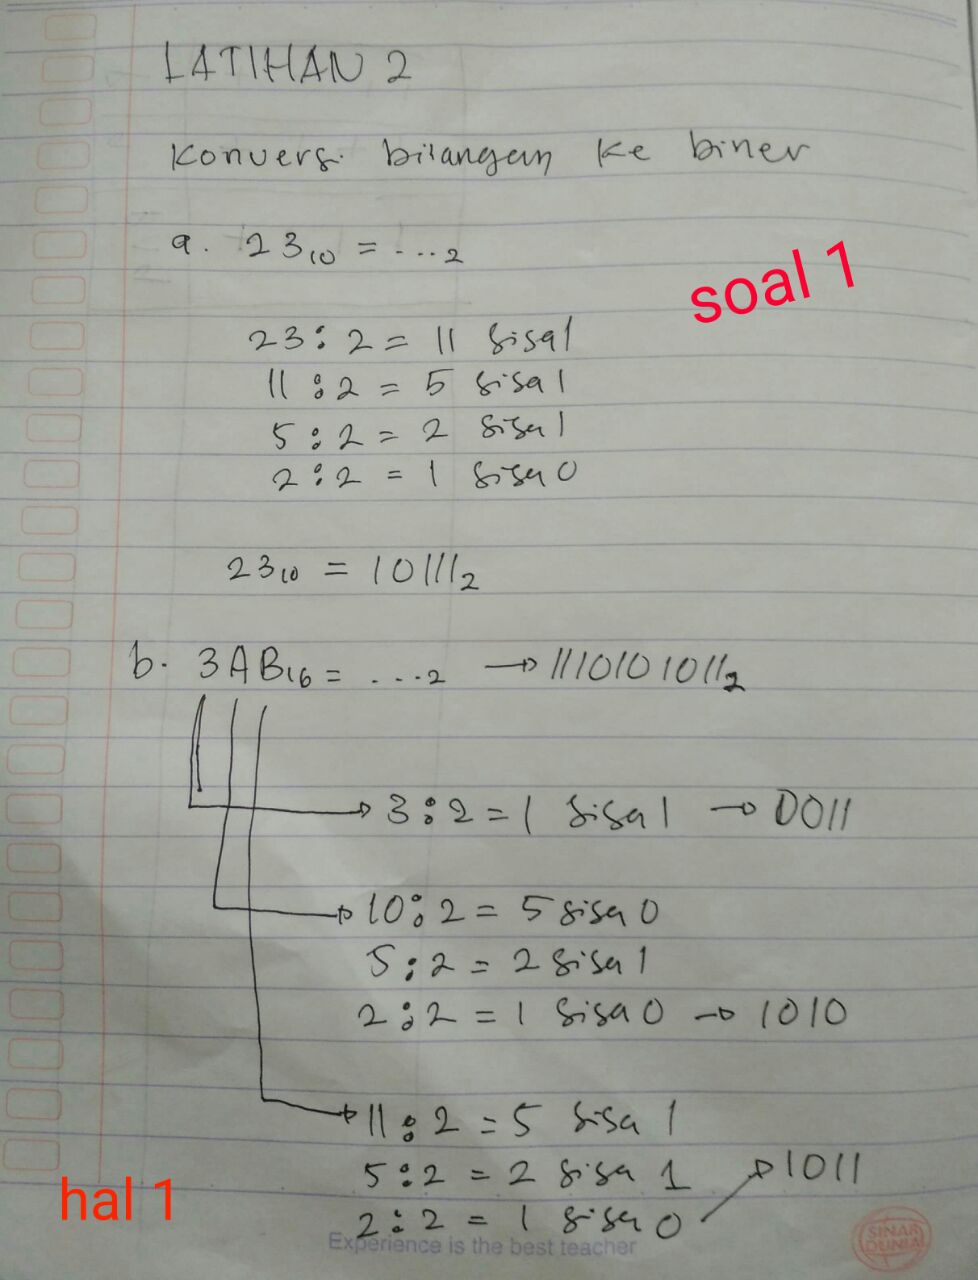 LATIHAN 2
Konversi bilangan ke biner
a. 23₁₀ = ...₂
soal 1
23 : 2 = 11 sisa 1
11 : 2 = 5 sisa 1
5 : 2 = 2 sisa 1
2 : 2 = 1 sisa 0
23₁₀ = 10111₂
b. 3AB₁₆ = ...₂ → 1110101011₂
→ 3 : 2 = 1 sisa 1 → 0011
→ 10 : 2 = 5 sisa 0
5 : 2 = 2 sisa 1
2 : 2 = 1 sisa 0 → 1010
→ 11 : 2 = 5 sisa 1
5 : 2 = 2 sisa 1 → 1011
2 : 2 = 1 sisa 0
hal 1
Experience is the best teacher
SINAR
DUNIA